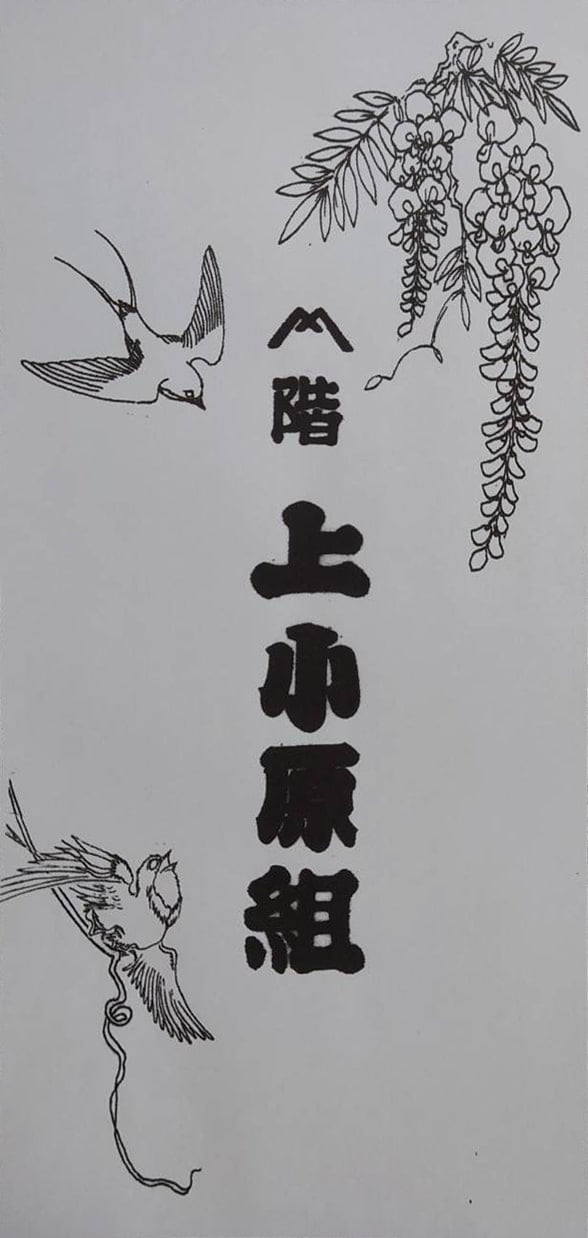 階
上小原組